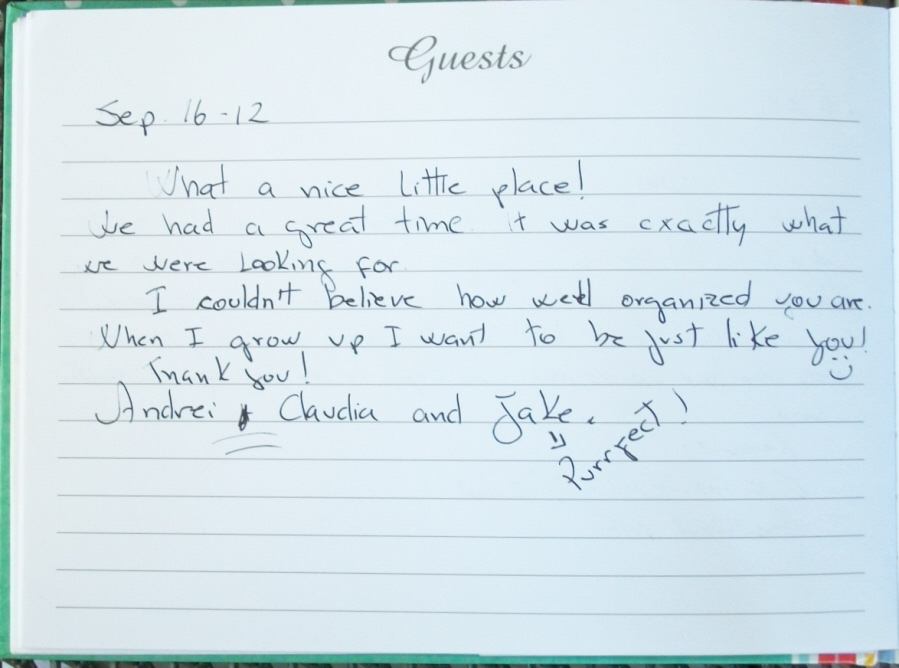 Guests
Sep. 16-12
What a nice little place!
We had a great time. It was exactly what
we were looking for.
I couldn't believe how well organized you are.
When I grow up I want to be just like you!
Thank you!
Andrei, Claudia and Jake.
Purrfect!